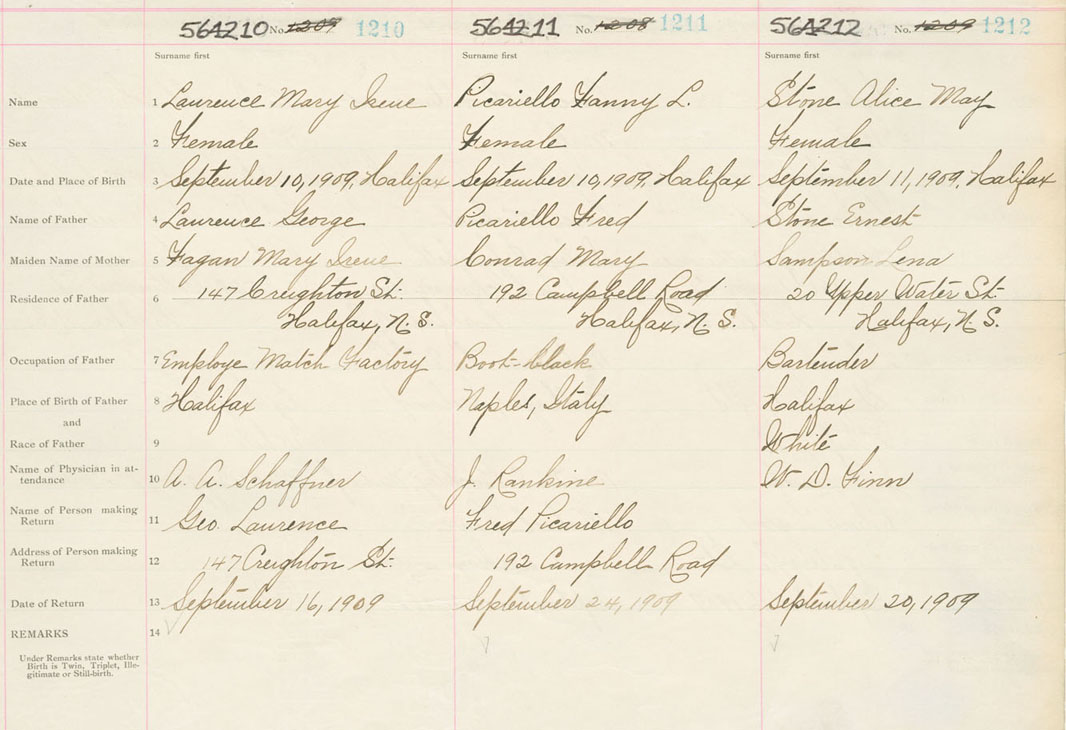 564210 No. 1209 1210 564211 No. 1208 1211 564212 No. 1209 1212
Surname first Surname first Surname first
Name 1 Laurence Mary Irene Picariello Fanny L. Stone Alice May
Sex 2 Female Female Female
Date and Place of Birth 3 September 10, 1909, Halifax September 10, 1909, Halifax September 11, 1909, Halifax
Name of Father 4 Laurence George Picariello Fred Stone Ernest
Maiden Name of Mother 5 Fagan Mary Irene Conrad Mary Sampson Lena
Residence of Father 6 147 Creighton St. 192 Campbell Road 20 Upper Water St.
Halifax, N. S. Halifax, N. S. Halifax, N. S.
Occupation of Father 7 Employe Match Factory Boot-black Bartender
Place of Birth of Father 8 Halifax Naples, Italy Halifax
and
Race of Father 9 White
Name of Physician in at-
tendance 10 A. A. Schaffner J. Rankine W. D. Finn
Name of Person making
Return 11 Geo. Laurence Fred Picariello
Address of Person making
Return 12 147 Creighton St. 192 Campbell Road
Date of Return 13 September 16, 1909 September 24, 1909 September 20, 1909
REMARKS 14
Under Remarks state whether
Birth is Twin, Triplet, Ille-
gitimate or Still-birth.